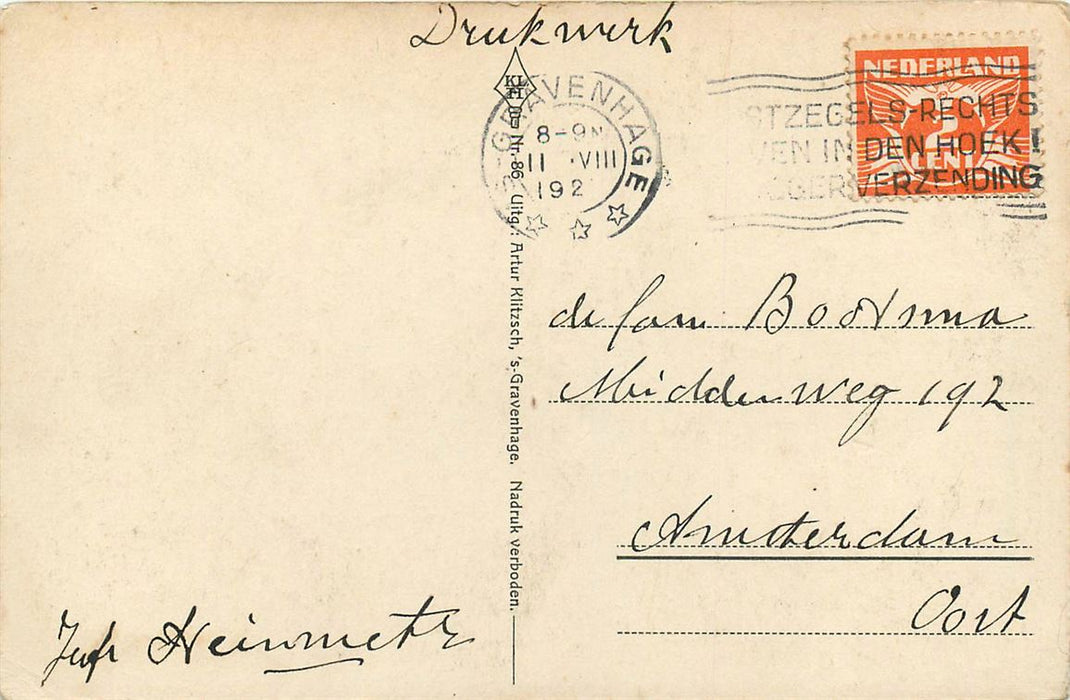 Drukwerk
KL
H
'S-GRAVENHAGE
8-9N
11 VIII
192
NEDERLAND
2
CENT
STZEGELS-RECHTS
VEN IN DEN HOEK!
GER VERZENDING
Nr. 86 Uitg.: Artur Klitzsch, 's-Gravenhage. Nadruk verboden.
de fam. Bootsma
Middenweg 192
Amsterdam
Oost
Jufr Heinmetz